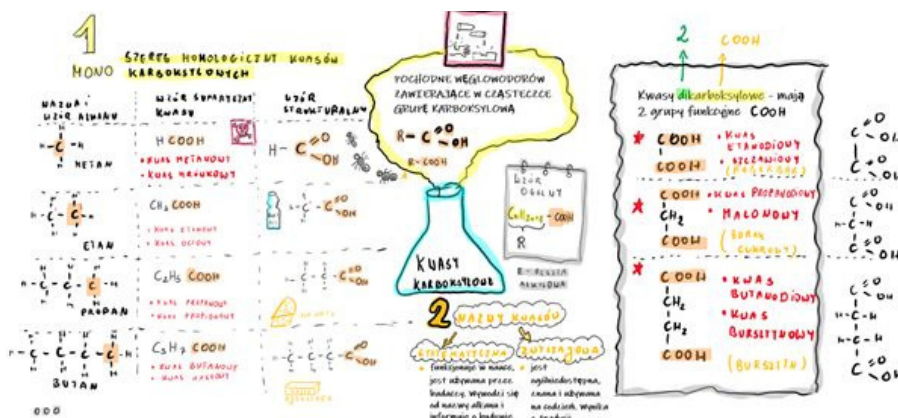 1
MONO
SZEREG HOMOLOGICZNY KWASÓW
KARBOKSYLOWYCH
NAZWA I
WZÓR ALKANU
WZÓR SUMARYCZNY
KWASU
WZÓR
STRUKTURALNY
METAN
H COOH
• KWAS METANOWY
• KWAS MRÓWKOWY
ETAN
CH3 COOH
• KWAS ETANOWY
• KWAS OCTOWY
PROPAN
C2H5 COOH
• KWAS PROPANOWY
• KWAS PROPIONOWY
BUTAN
C3H7 COOH
• KWAS BUTANOWY
• KWAS MASŁOWY
POCHODNE WĘGLOWODORÓW
ZAWIERAJĄCE W CZĄSTECZCE
GRUPĘ KARBOKSYLOWĄ
R-COOH
KWASY
KARBOKSYLOWE
WZÓR
OGÓLNY
CnH2n+1-COOH
R
R - RESZTA
ALKILOWA
2 NAZWY KWASÓW
SYSTEMATYCZNA
• funkcjonuje w nauce,
jest używana przez
badaczy. Wywodzi się
od nazwy alkanu i
informuje o budowie
ZWYCZAJOWA
• jest
ogólniedostępna,
znana i używana
na codzień. Wynika
z tradycji
2
COOH
Kwasy dikarboksylowe - mają
2 grupy funkcyjne COOH
COOH
COOH
• KWAS
ETANODIOWY
• SZCZAWIOWY
COOH
CH2
COOH
• KWAS PROPANODIOWY
• MALONOWY
(BURAK
CUKROWY)
COOH
CH2
CH2
COOH
• KWAS
BUTANODIOWY
• KWAS
BURSZTYNOWY
(BURSZTYN)